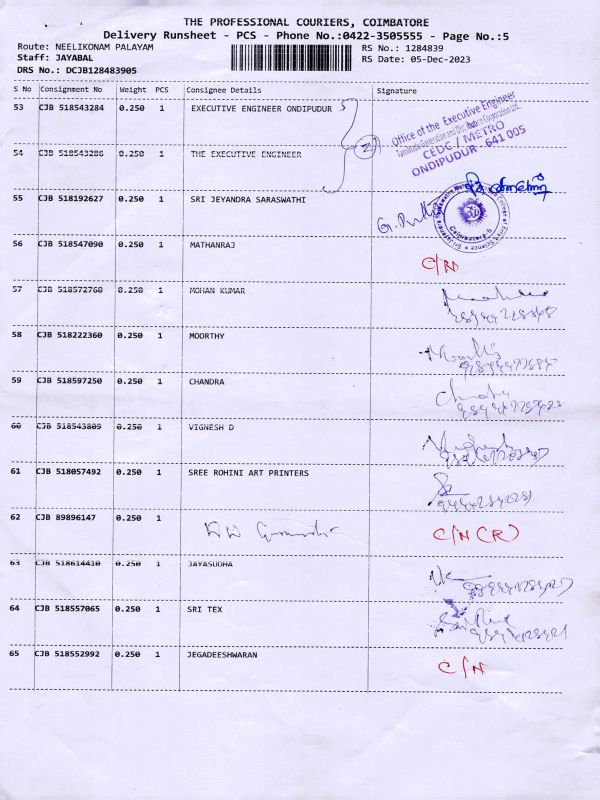 THE PROFESSIONAL COURIERS, COIMBATORE
Delivery Runsheet - PCS - Phone No.:0422-3505555 - Page No.:5
Route: NEELIKONAM PALAYAM
RS No.: 1284839
Staff: JAYABAL
RS Date: 05-Dec-2023
DRS No.: DCJB128483905
S No Consignment No Weight PCS Consignee Details Signature
53 CJB 518543284 0.250 1 EXECUTIVE ENGINEER ONDIPUDUR
Office of the Executive Engineer
CEDC / METRO
ONDIPUDUR - 641 005
54 CJB 518543286 0.250 1 THE EXECUTIVE ENGINEER
2
55 CJB 518192627 0.250 1 SRI JEYANDRA SARASWATHI
56 CJB 518547090 0.250 1 MATHANRAJ C/N
57 CJB 518572760 0.250 1 MOHAN KUMAR
58 CJB 518222360 0.250 1 MOORTHY
59 CJB 518597250 0.250 1 CHANDRA
60 CJB 518543809 0.250 1 VIGNESH D
61 CJB 518057492 0.250 1 SREE ROHINI ART PRINTERS
62 CJB 89896147 0.250 1 C/N (R)
63 CJB 518614410 0.250 1 JAYASUDHA
64 CJB 518557065 0.250 1 SRI TEX
65 CJB 518552992 0.250 1 JEGADEESHWARAN C/N